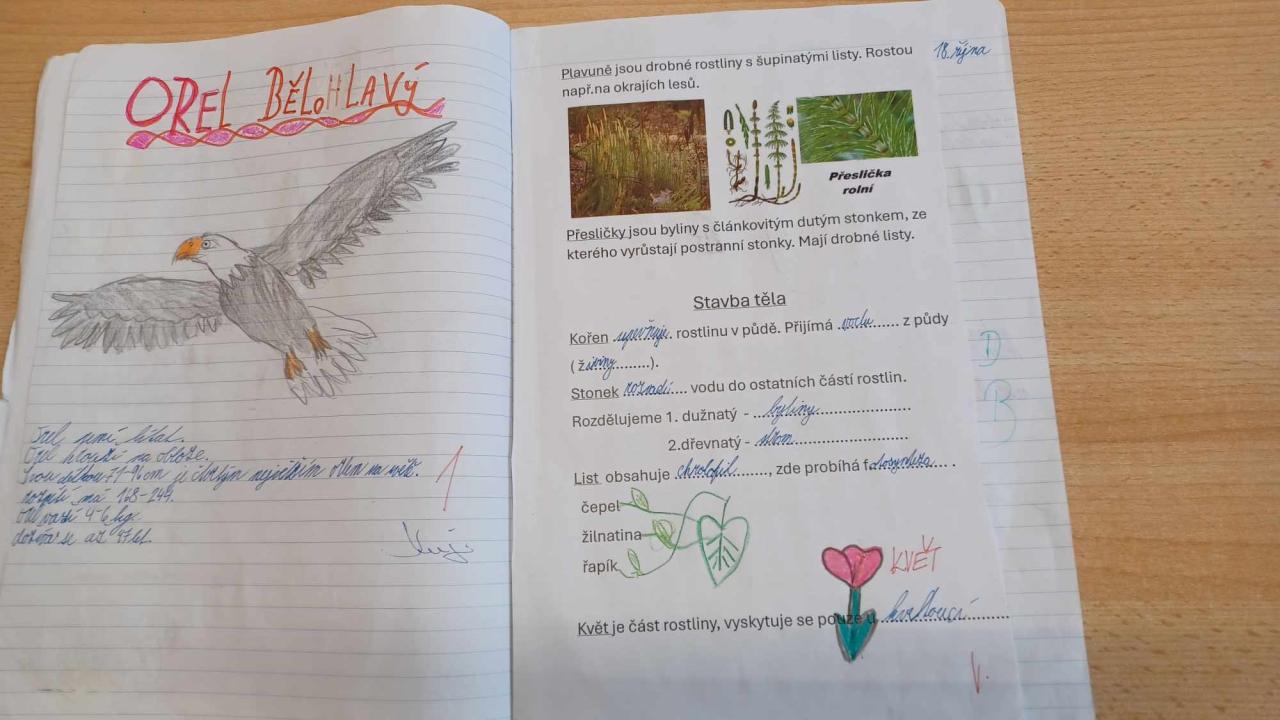 OREL BĚLOHLAVÝ
Orel umí lítat.
Orel hlouží na obloze.
Svou délkou 71-96 cm je druhým největším orlem na světě.
rozpětí má 168-244.
Orel váží 4-6 kg.
dožívá se až 47 let.
1
18. října
Plavuně jsou drobné rostliny s šupinatými listy. Rostou
např.na okrajích lesů.
Přeslička
rolní
Přesličky jsou byliny s článkovitým dutým stonkem, ze
kterého vyrůstají postranní stonky. Mají drobné listy.
Stavba těla
Kořen upevňuje. rostlinu v půdě. Přijímá vodu....... z půdy
( živiny.........).
Stonek rozvádí.... vodu do ostatních částí rostlin.
Rozdělujeme 1. dužnatý - ...byliny........................
2.dřevnatý - strom..............................
List obsahuje chrolofil........, zde probíhá fotosyntéza.... .
čepel
žilnatina
řapík
D
B
KVĚT
Květ je část rostliny, vyskytuje se pouze u kvetoucí.........